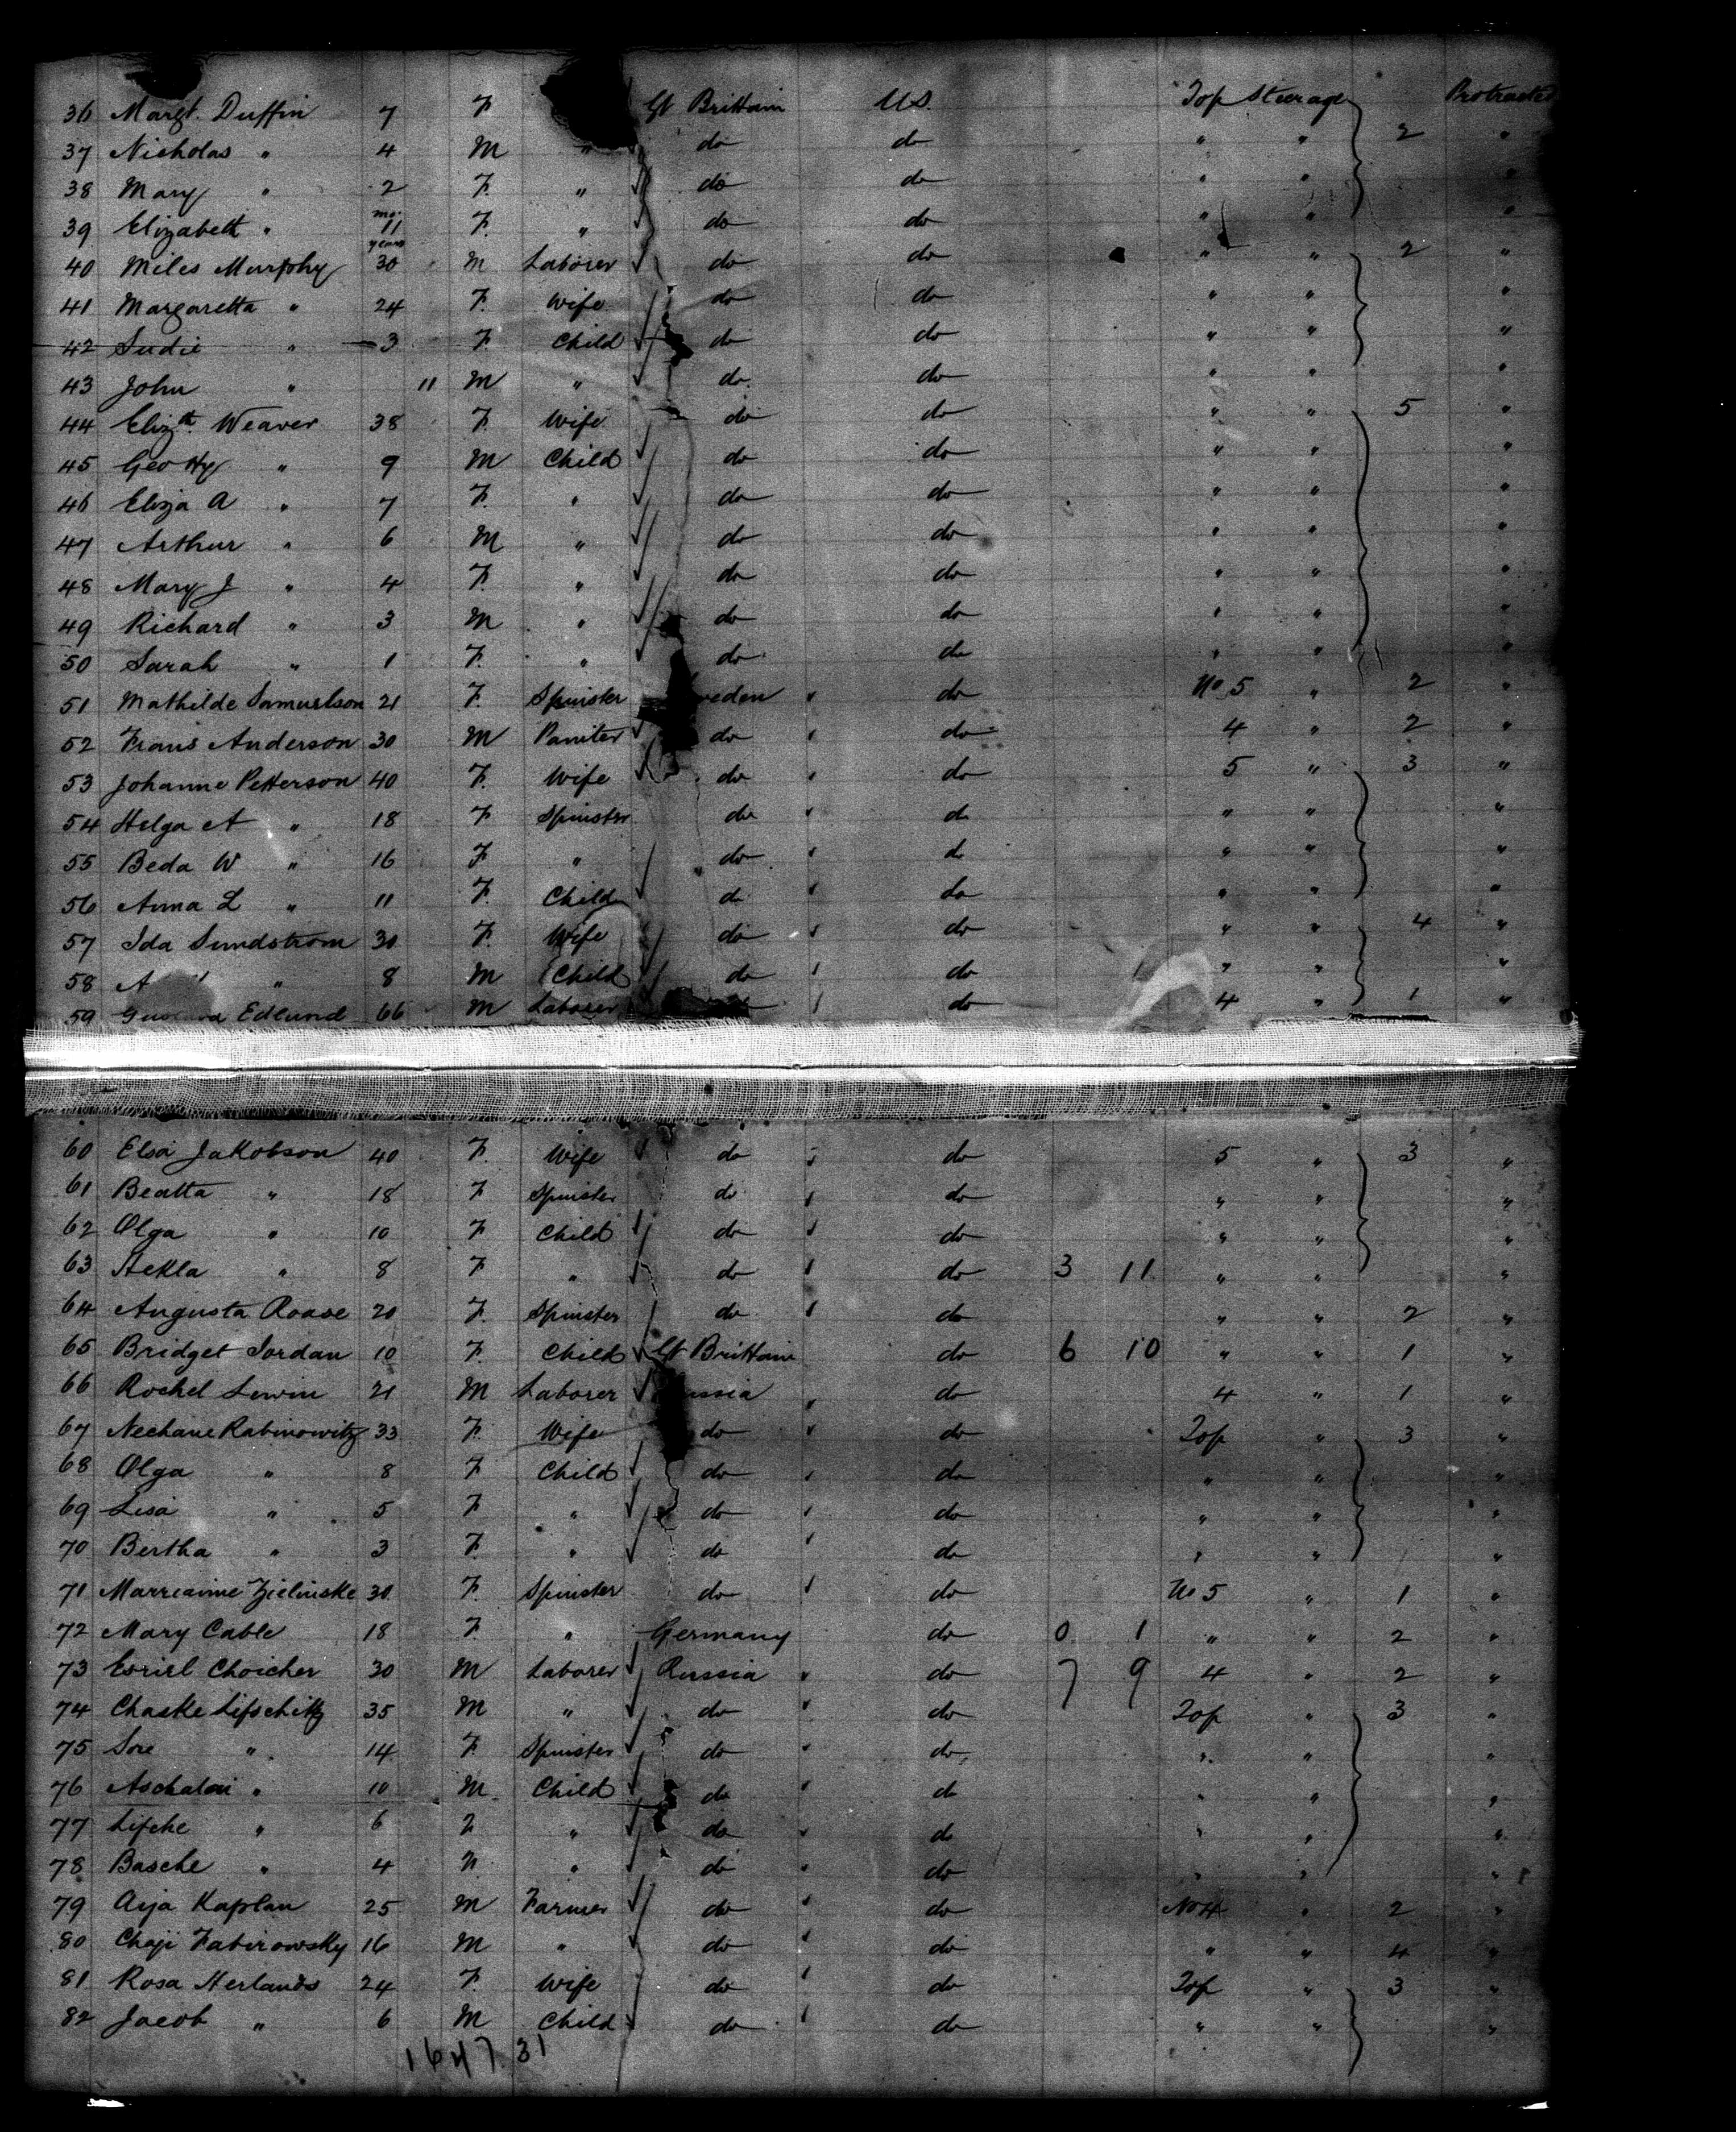 36 Margt. Duffin 7 F Gt Brittain U.S. Top Steerage Protracted
37 Nicholas " 4 M " do do " " 2 "
38 Mary " 2 F. " do do " " "
39 Elizabeth " mo. 11 F. " do do " " "
40 Miles Murphy years 30 M Laborer do do " " 2 "
41 Margaretta " 24 F. Wife do do " " "
42 Sudie " 3 F. Child do do " " "
43 John " 11 M " do. do " " "
44 Elizth. Weaver 38 F. Wife do do " " 5 "
45 Geo Hy " 9 M Child do do " " "
46 Eliza A " 7 F. " do do " " "
47 Arthur " 6 M " do do " " "
48 Mary J " 4 F. " do do " " "
49 Richard " 3 M " do do " " "
50 Sarah " 1 F. " do do " " "
51 Mathilde Samuelson 21 F. Spinster eden do No 5 " 2 "
52 Frans Anderson 30 M Paniter do do 4 " 2 "
53 Johanne Petterson 40 F. Wife do do 5 " 3 "
54 Helga A " 18 F Spinster do do " " "
55 Beda W " 16 F " do do " " "
56 Anna L " 11 F. Child do do " " "
57 Ida Sundstrom 30 F. Wife do do " " 4 "
58 A " 8 M Child do do " " "
59 Edlund 66 M Laborer do 4 " 1 "
60 Elsa Jakobson 40 F. Wife do do 5 " 3 "
61 Beatta " 18 F Spinster do do " " "
62 Olga " 10 F Child do do " " "
63 Hekla " 8 F " do do 3 11 " " "
64 Augusta Roase 20 F. Spinster do do " " 2 "
65 Bridget Jordan 10 F. Child Gt Brittain do 6 10 " " 1 "
66 Rochel Lewin 21 M Laborer ussia do 4 " 1 "
67 Nechane Rabinowitz 33 F. Wife do do Top " 3 "
68 Olga " 8 F Child do do " " "
69 Lisa " 5 F " do do " " "
70 Bertha " 3 F. " do do " " "
71 Marrianne Zielinske 30 F. Spinster do do No 5 " 1 "
72 Mary Cable 18 F. " Germany do 0 1 " " 2 "
73 Esriel Choicher 30 M Laborer Russia do 7 9 4 " 2 "
74 Chaske Lifschitz 35 M " do do Top " 3 "
75 Sore " 14 F Spinster do do " " "
76 Aschalai " 10 M Child do do " " "
77 Lifche " 6 " do do " " "
78 Basche " 4 " do do " " "
79 Asja Kaplan 25 M Farmer do do No 4 " 2 "
80 Chaji Fabirowsky 16 M " do do " " 4 "
81 Rosa Herlands 24 F. Wife do do Top " 3 "
82 Jacob " 6 M Child do do " " "
1647.31